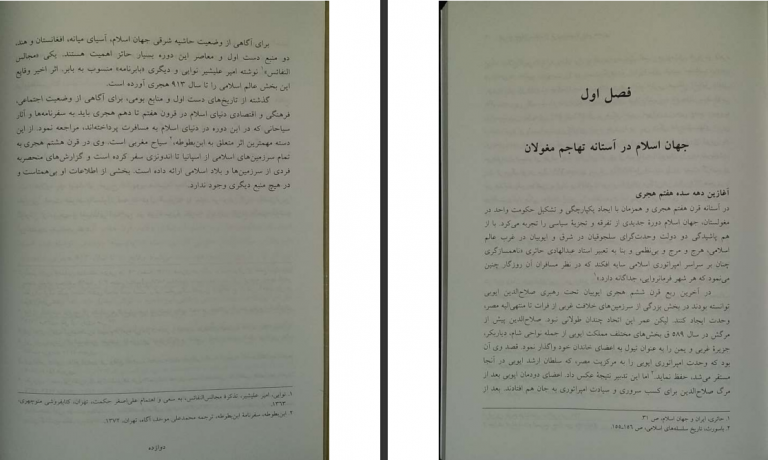 برای آگاهی از وضعیت حاشیه شرقی جهان اسلام، آسیای میانه، افغانستان و هند،
دو منبع دست اول و معاصر این دوره بسیار حائز اهمیت هستند. یکی «مجالس
النفائس»۱ نوشته امیر علیشیر نوایی و دیگری «بابرنامه» منسوب به بابر. اثر اخیر وقایع
این بخش عالم اسلامی را تا سال ۹۱۳ هجری آورده است.
گذشته از تاریخ‌های دست اول و منابع بومی، برای آگاهی از وضعیت اجتماعی،
فرهنگی و اقتصادی دنیای اسلام در قرون هفتم تا دهم هجری باید به سفرنامه‌ها و آثار
سیاحانی که در این دوره در دنیای اسلام به مسافرت پرداخته‌اند، مراجعه نمود. از این
دسته مهمترین اثر متعلق به ابن‌بطوطه،۲ سیاح مغربی است. وی در قرن هشتم هجری به
تمام سرزمین‌های اسلامی از اسپانیا تا اندونزی سفر کرده است و گزارش‌های منحصربه
فردی از سرزمین‌ها و بلاد اسلامی ارائه داده است. بخشی از اطلاعات او بی‌همتاست و
در هیچ منبع دیگری وجود ندارد.
۱. نوایی، امیر علیشیر، تذکرهٔ مجالس‌النفائس، به سعی و اهتمام علی‌اصغر حکمت، تهران، کتابفروشی منوچهری،
۱۳۶۳.
۲. ابن‌بطوطه، سفرنامهٔ ابن‌بطوطه، ترجمه محمدعلی موحد، آگاه، تهران، ۱۳۷۲.
دوازده
فصل اول
جهان اسلام در آستانه تهاجم مغولان
آغازین دهه سده هفتم هجری
در آستانه قرن هفتم هجری و همزمان با ایجاد یکپارچگی و تشکیل حکومت واحد در
مغولستان، جهان اسلام دورهٔ جدیدی از تفرقه و تجزیهٔ سیاسی را تجربه می‌کرد. با از
هم پاشیدگی دو دولت وحدت‌گرای سلجوقیان در شرق و ایوبیان در غرب عالم
اسلامی، هرج و مرج و بی‌نظمی و بنا به تعبیر استاد عبدالهادی حائری «ناهمسازگری
چنان بر سراسر امپراتوری اسلامی سایه افکند که در نظر مسافران آن روزگار چنین
می‌نمود که هر شهر فرمانروایی، جداگانه دارد.»۱
در آخرین ربع قرن ششم هجری ایوبیان تحت رهبری صلاح‌الدین ایوبی
توانسته بودند در بخش بزرگی از سرزمین‌های خلافت غربی از فرات تا منتهی‌الیه مصر،
وحدت ایجاد کنند. لیکن عمر این اتحاد چندان طولانی نبود. صلاح‌الدین پیش از
مرگش در سال ۵۸۹ ق بخش‌های مختلف مملکت ایوبی از جمله نواحی شام، دیاربکر،
جزیرهٔ غربی و یمن را به عنوان تیول به اعضای خاندان خود واگذار نمود. قصد وی آن
بود که وحدت امپراتوری ایوبی را به مرکزیت مصر، که سلطان ارشد ایوبی در آنجا
مستقر می‌شد، حفظ نماید.۲ اما این تدبیر نتیجهٔ عکس داد. اعضای دودمان ایوبی بعد از
مرگ صلاح‌الدین برای کسب سروری و سیادت امپراتوری به جان هم افتادند. بعد از
۱. حائری، ایران و جهان اسلام، ص ۳۱.
۲. باسورث، تاریخ سلسله‌های اسلامی، ص ۱۵۶ـ۱۵۵.